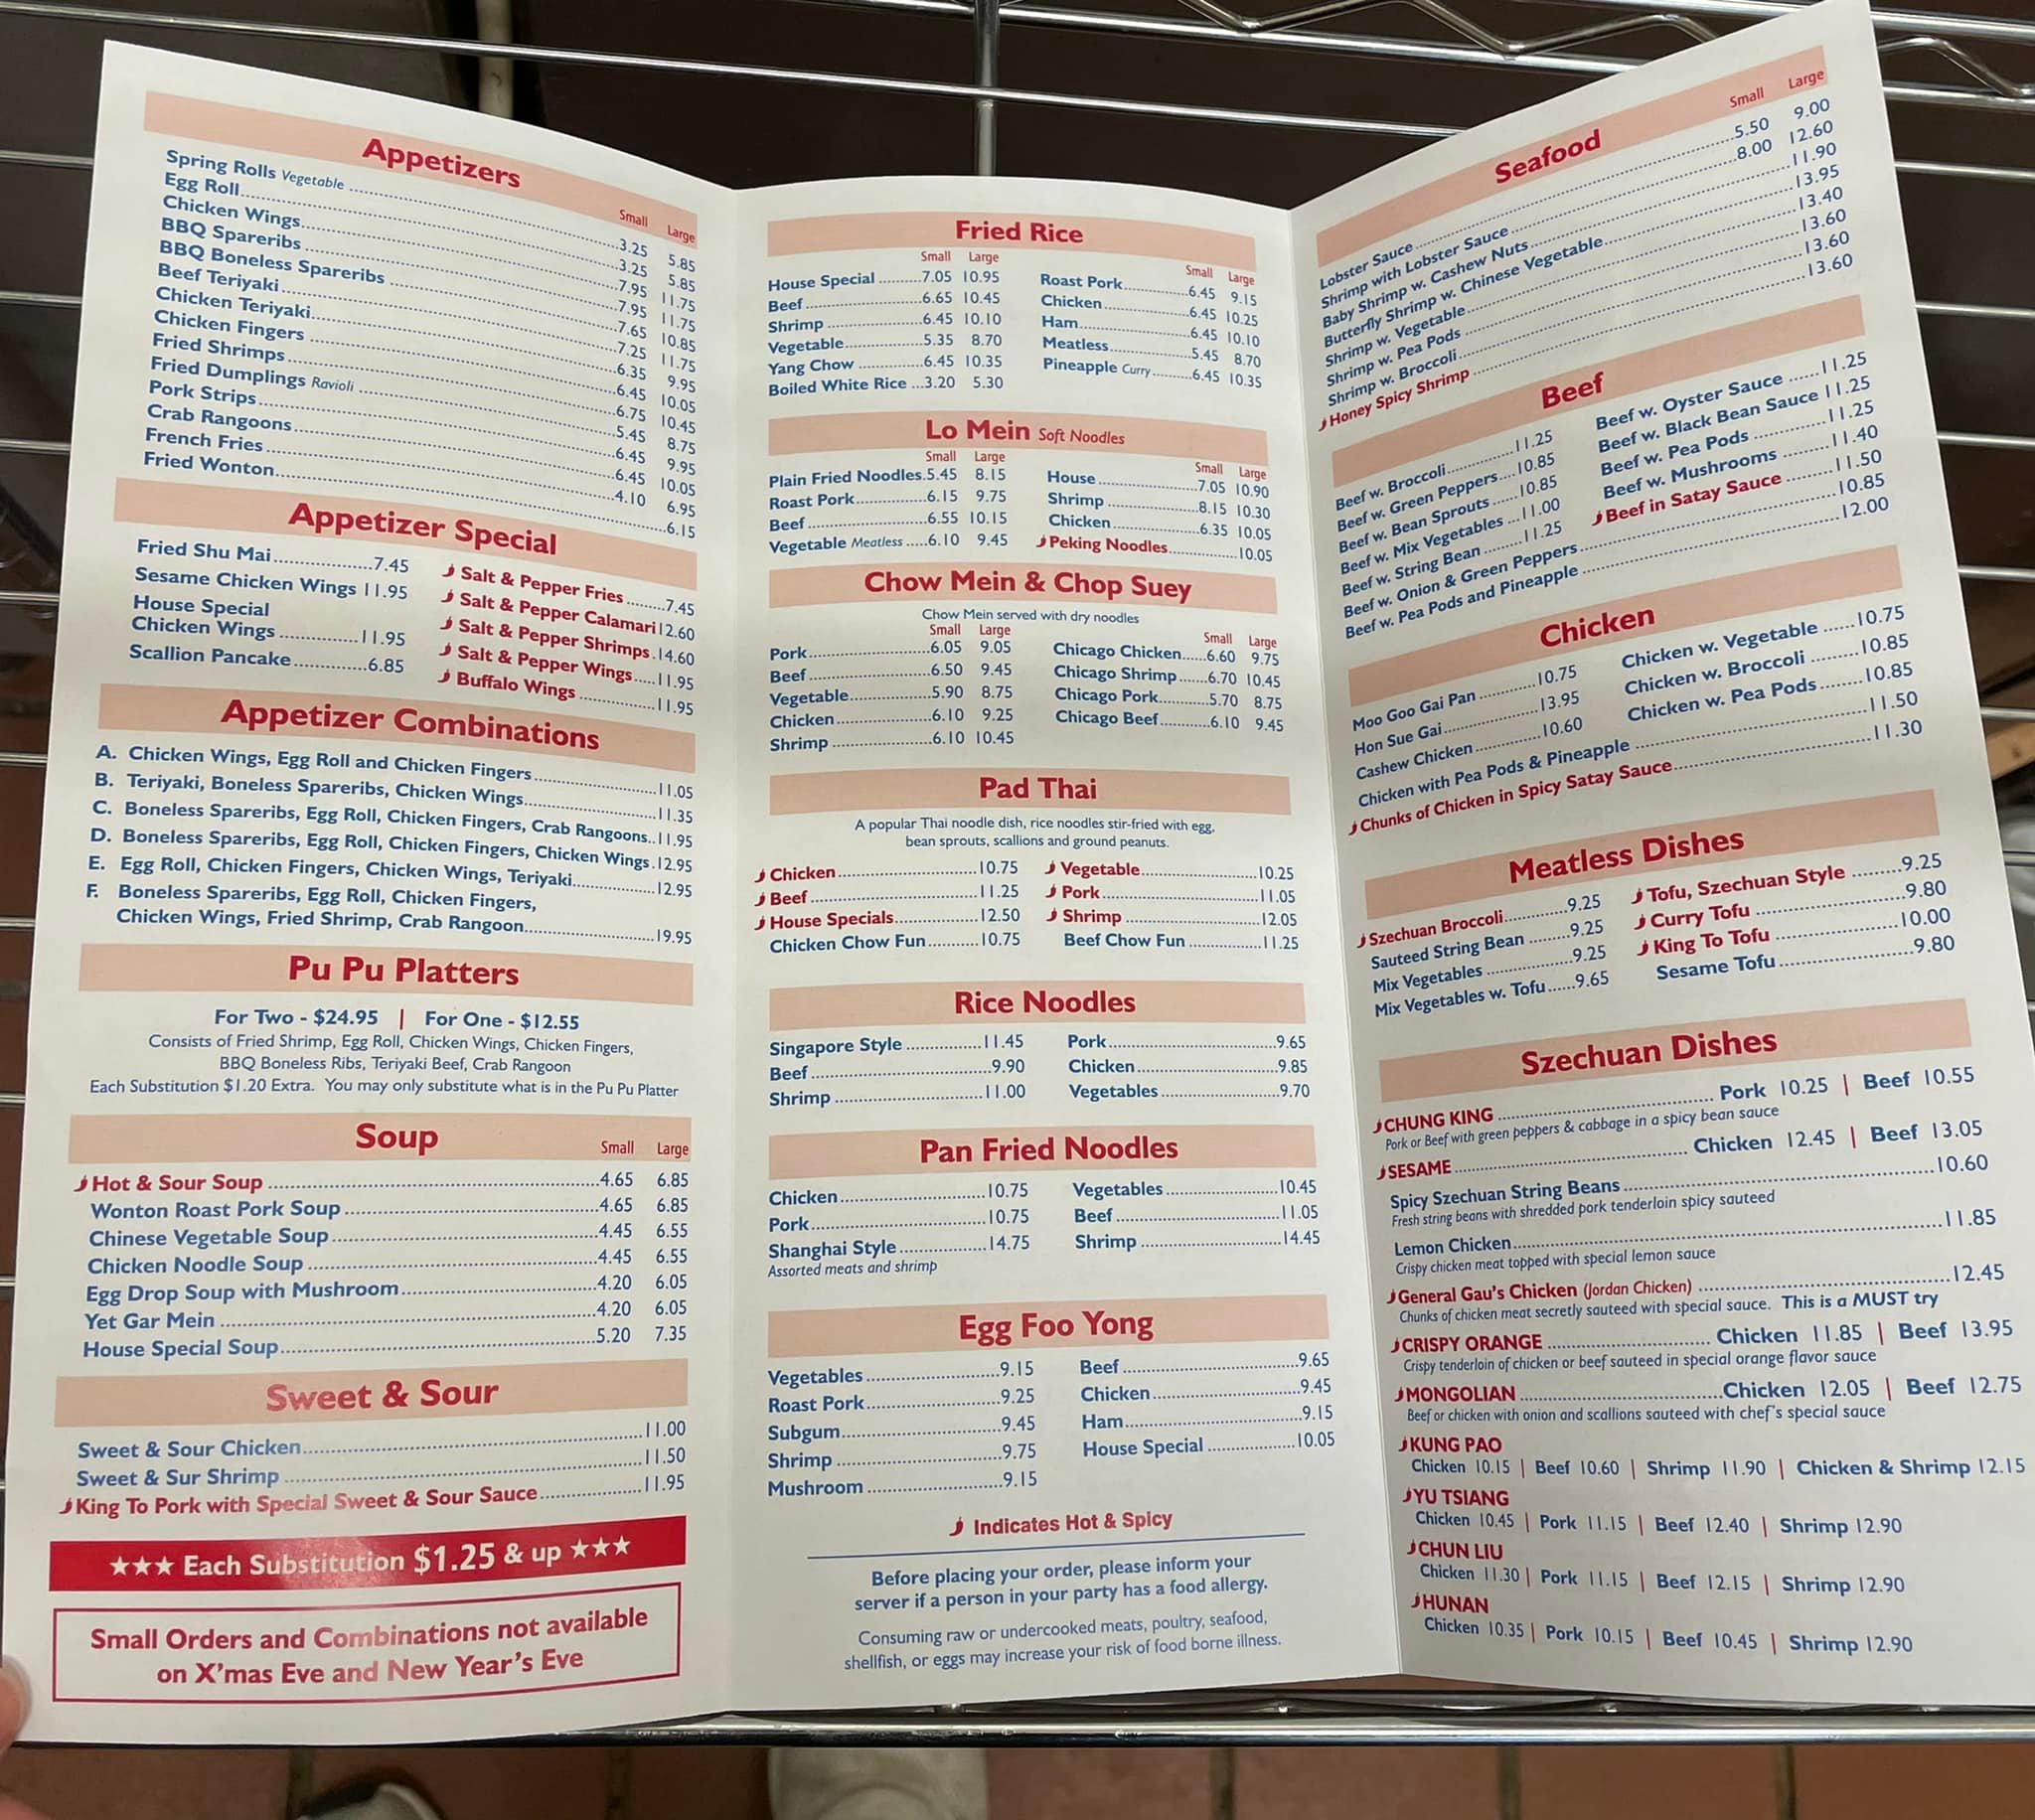 Appetizers
Small Large
Spring Rolls Vegetable 3.25 5.85
Egg Roll 3.25 5.85
Chicken Wings 7.95 11.75
BBQ Spareribs 7.95 11.75
BBQ Boneless Spareribs 7.65 10.85
Beef Teriyaki 7.25 11.75
Chicken Teriyaki 6.35 9.95
Chicken Fingers 6.45 10.05
Fried Shrimps 6.75 10.45
Fried Dumplings Ravioli 5.45 8.75
Pork Strips 6.45 9.95
Crab Rangoons 6.45 10.05
French Fries 4.10 6.95
Fried Wonton 6.15
Appetizer Special
Fried Shu Mai 7.45
Sesame Chicken Wings 11.95
House Special
Chicken Wings 11.95
Scallion Pancake 6.85
Salt & Pepper Fries 7.45
Salt & Pepper Calamari 12.60
Salt & Pepper Shrimps 14.60
Salt & Pepper Wings 11.95
Buffalo Wings 11.95
Appetizer Combinations
A. Chicken Wings, Egg Roll and Chicken Fingers 11.05
B. Teriyaki, Boneless Spareribs, Chicken Wings 11.35
C. Boneless Spareribs, Egg Roll, Chicken Fingers, Crab Rangoons 11.95
D. Boneless Spareribs, Egg Roll, Chicken Fingers, Chicken Wings 12.95
E. Egg Roll, Chicken Fingers, Chicken Wings, Teriyaki 12.95
F. Boneless Spareribs, Egg Roll, Chicken Fingers,
Chicken Wings, Fried Shrimp, Crab Rangoon 19.95
Pu Pu Platters
For Two - $24.95 | For One - $12.55
Consists of Fried Shrimp, Egg Roll, Chicken Wings, Chicken Fingers,
BBQ Boneless Ribs, Teriyaki Beef, Crab Rangoon
Each Substitution $1.20 Extra. You may only substitute what is in the Pu Pu Platter
Soup
Small Large
Hot & Sour Soup 4.65 6.85
Wonton Roast Pork Soup 4.65 6.85
Chinese Vegetable Soup 4.45 6.55
Chicken Noodle Soup 4.45 6.55
Egg Drop Soup with Mushroom 4.20 6.05
Yet Gar Mein 4.20 6.05
House Special Soup 5.20 7.35
Sweet & Sour
Sweet & Sour Chicken 11.00
Sweet & Sur Shrimp 11.50
King To Pork with Special Sweet & Sour Sauce 11.95
★★★ Each Substitution $1.25 & up ★★★
Small Orders and Combinations not available
on X'mas Eve and New Year's Eve
Fried Rice
Small Large
House Special 7.05 10.95
Beef 6.65 10.45
Shrimp 6.45 10.10
Vegetable 5.35 8.70
Yang Chow 6.45 10.35
Boiled White Rice 3.20 5.30
Small Large
Roast Pork 6.45 9.15
Chicken 6.45 10.25
Ham 6.45 10.10
Meatless 5.45 8.70
Pineapple Curry 6.45 10.35
Lo Mein Soft Noodles
Small Large
Plain Fried Noodles 5.45 8.15
Roast Pork 6.15 9.75
Beef 6.55 10.15
Vegetable Meatless 6.10 9.45
Small Large
House 7.05 10.90
Shrimp 8.15 10.30
Chicken 6.35 10.05
Peking Noodles 10.05
Chow Mein & Chop Suey
Chow Mein served with dry noodles
Small Large
Pork 6.05 9.05
Beef 6.50 9.45
Vegetable 5.90 8.75
Chicken 6.10 9.25
Shrimp 6.10 10.45
Small Large
Chicago Chicken 6.60 9.75
Chicago Shrimp 6.70 10.45
Chicago Pork 5.70 8.75
Chicago Beef 6.10 9.45
Pad Thai
A popular Thai noodle dish, rice noodles stir-fried with egg,
bean sprouts, scallions and ground peanuts.
Chicken 10.75
Beef 11.25
House Specials 12.50
Chicken Chow Fun 10.75
Vegetable 10.25
Pork 11.05
Shrimp 12.05
Beef Chow Fun 11.25
Rice Noodles
Singapore Style 11.45
Beef 9.90
Shrimp 11.00
Pork 9.65
Chicken 9.85
Vegetables 9.70
Pan Fried Noodles
Chicken 10.75
Pork 10.75
Shanghai Style 14.75
Assorted meats and shrimp
Vegetables 10.45
Beef 11.05
Shrimp 14.45
Egg Foo Yong
Vegetables 9.15
Roast Pork 9.25
Subgum 9.45
Shrimp 9.75
Mushroom 9.15
Beef 9.65
Chicken 9.45
Ham 9.15
House Special 10.05
Indicates Hot & Spicy
Before placing your order, please inform your
server if a person in your party has a food allergy.
Consuming raw or undercooked meats, poultry, seafood,
shellfish, or eggs may increase your risk of food borne illness.
Seafood
Small Large
Lobster Sauce 5.50 9.00
Shrimp with Lobster Sauce 8.00 12.60
Baby Shrimp w. Cashew Nuts 11.90
Butterfly Shrimp w. Chinese Vegetable 13.95
Shrimp w. Vegetable 13.40
Shrimp w. Pea Pods 13.60
Shrimp w. Broccoli 13.60
Honey Spicy Shrimp 13.60
Beef
Beef w. Broccoli 11.25
Beef w. Green Peppers 10.85
Beef w. Bean Sprouts 10.85
Beef w. Mix Vegetables 11.00
Beef w. String Bean 11.25
Beef w. Oyster Sauce 11.25
Beef w. Black Bean Sauce 11.25
Beef w. Pea Pods 11.25
Beef w. Mushrooms 11.40
Beef in Satay Sauce 11.50
Beef w. Onion & Green Peppers 10.85
Beef w. Pea Pods and Pineapple 12.00
Chicken
Moo Goo Gai Pan 10.75
Hon Sue Gai 13.95
Cashew Chicken 10.60
Chicken w. Vegetable 10.75
Chicken w. Broccoli 10.85
Chicken w. Pea Pods 10.85
Chicken with Pea Pods & Pineapple 11.50
Chunks of Chicken in Spicy Satay Sauce 11.30
Meatless Dishes
Szechuan Broccoli 9.25
Sauteed String Bean 9.25
Mix Vegetables 9.25
Mix Vegetables w. Tofu 9.65
Tofu, Szechuan Style 9.25
Curry Tofu 9.80
King To Tofu 10.00
Sesame Tofu 9.80
Szechuan Dishes
CHUNG KING Pork 10.25 | Beef 10.55
Pork or Beef with green peppers & cabbage in a spicy bean sauce
SESAME Chicken 12.45 | Beef 13.05
Spicy Szechuan String Beans 10.60
Fresh string beans with shredded pork tenderloin spicy sauteed
Lemon Chicken 11.85
Crispy chicken meat topped with special lemon sauce
General Gau's Chicken (Jordan Chicken) 12.45
Chunks of chicken meat secretly sauteed with special sauce. This is a MUST try
CRISPY ORANGE Chicken 11.85 | Beef 13.95
Crispy tenderloin of chicken or beef sauteed in special orange flavor sauce
MONGOLIAN Chicken 12.05 | Beef 12.75
Beef or chicken with onion and scallions sauteed with chef's special sauce
KUNG PAO
Chicken 10.15 | Beef 10.60 | Shrimp 11.90 | Chicken & Shrimp 12.15
YU TSIANG
Chicken 10.45 | Pork 11.15 | Beef 12.40 | Shrimp 12.90
CHUN LIU
Chicken 11.30 | Pork 11.15 | Beef 12.15 | Shrimp 12.90
HUNAN
Chicken 10.35 | Pork 10.15 | Beef 10.45 | Shrimp 12.90